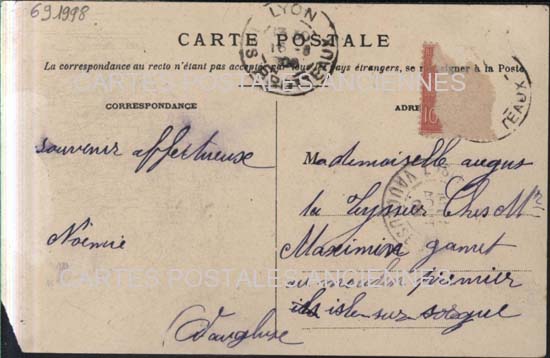 69 1998
LYON
CARTE POSTALE
La correspondance au recto n'étant pas acceptée par tous les pays étrangers, se renseigner à la Poste
CARTES POSTALES ANCIENNES
CORRESPONDANCE
ADRE
10
souvenir affectueuse
Noémie
Mademoiselle augus
Chès Mr
Maximin
au moulin premier
isle sur sorgue
Vaucluse
CARTES POSTALES ANCIENNES